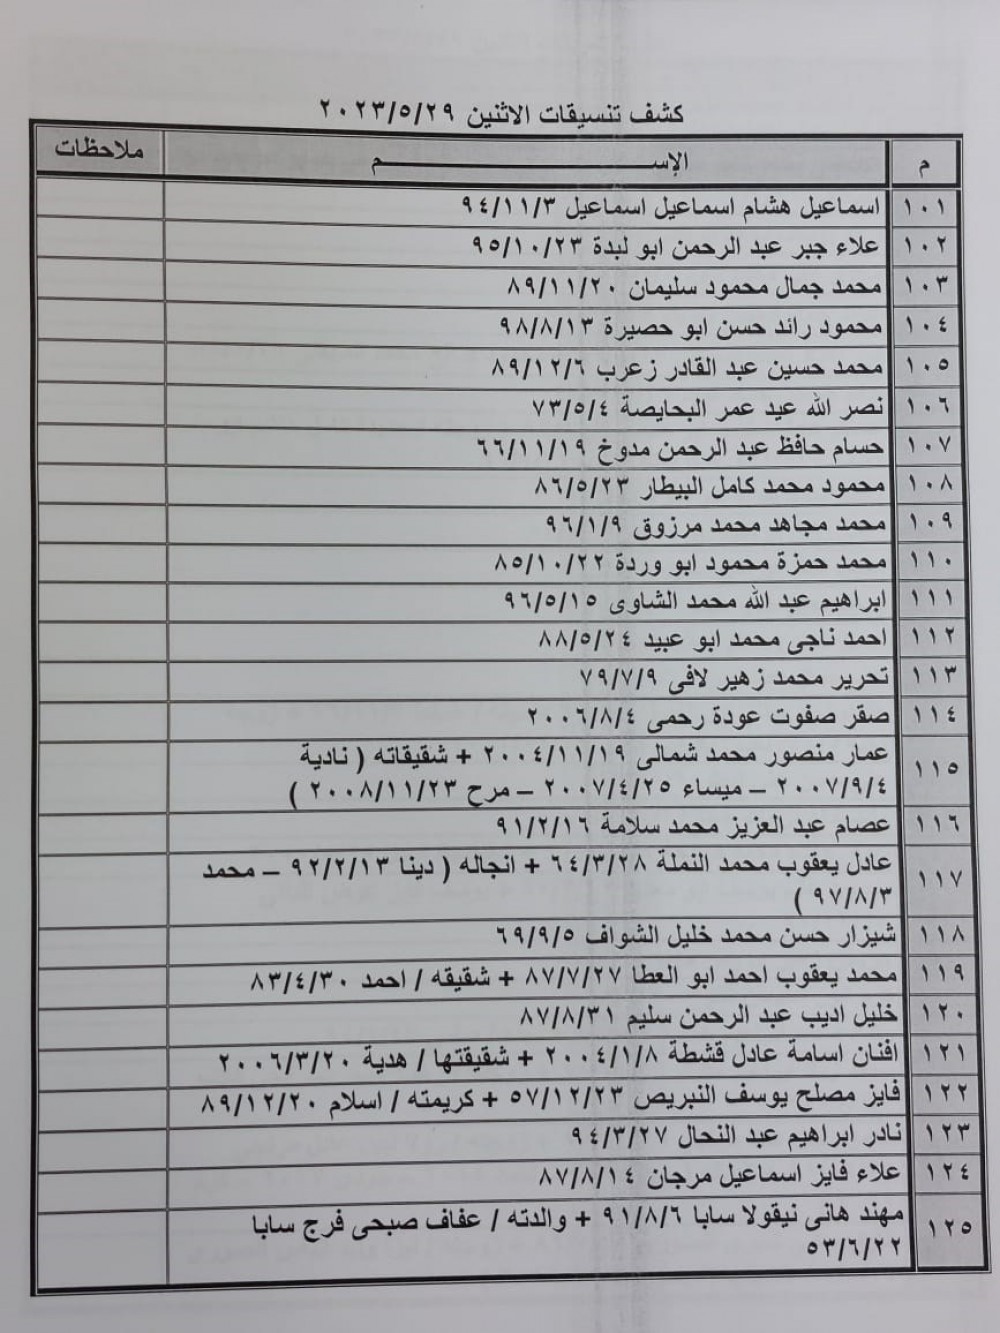 كشف تنسيقات الاثنين ٢٠٢٣/٥/٢٩
م الإســـــــــــم ملاحظات
١٠١ اسماعيل هشام اسماعيل اسماعيل ٩٤/١١/٣
١٠٢ علاء جبر عبد الرحمن ابو لبدة ٩٥/١٠/٢٣
١٠٣ محمد جمال محمود سليمان ٨٩/١١/٢٠
١٠٤ محمود رائد حسن ابو حصيرة ٩٨/٨/١٣
١٠٥ محمد حسين عبد القادر زعرب ٨٩/١٢/٦
١٠٦ نصر الله عيد عمر البحايصة ٧٣/٥/٤
١٠٧ حسام حافظ عبد الرحمن مدوخ ٦٦/١١/١٩
١٠٨ محمود محمد كامل البيطار ٨٦/٥/٢٣
١٠٩ محمد مجاهد محمد مرزوق ٩٦/١/٩
١١٠ محمد حمزة محمود ابو وردة ٨٥/١٠/٢٢
١١١ ابراهيم عبد الله محمد الشاوى ٩٦/٥/١٥
١١٢ احمد ناجى محمد ابو عبيد ٨٨/٥/٢٤
١١٣ تحرير محمد زهير لافى ٧٩/٧/٩
١١٤ صقر صفوت عودة رحمى ٢٠٠٦/٨/٤
١١٥ عمار منصور محمد شمالى ٢٠٠٤/١١/١٩ + شقيقاته ( نادية
٢٠٠٧/٩/٤ – ميساء ٢٠٠٧/٤/٢٥ – مرح ٢٠٠٨/١١/٢٣ )
١١٦ عصام عبد العزيز محمد سلامة ٩١/٢/١٦
١١٧ عادل يعقوب محمد النملة ٦٤/٣/٢٨ + انجاله ( دينا ٩٢/٢/١٣ – محمد
٩٧/٨/٣ )
١١٨ شيزار حسن محمد خليل الشواف ٦٩/٩/٥
١١٩ محمد يعقوب احمد ابو العطا ٨٧/٧/٢٧ + شقيقه / احمد ٨٣/٤/٣٠
١٢٠ خليل اديب عبد الرحمن سليم ٨٧/٨/٣١
١٢١ افنان اسامة عادل قشطة ٢٠٠٤/١/٨ + شقيقتها / هدية ٢٠٠٦/٣/٢٠
١٢٢ فايز مصلح يوسف النبريص ٥٧/١٢/٢٣ + كريمته / اسلام ٨٩/١٢/٢٠
١٢٣ نادر ابراهيم عبد النحال ٩٤/٣/٢٧
١٢٤ علاء فايز اسماعيل مرجان ٨٧/٨/١٤
١٢٥ مهند هانى نيقولا سابا ٩١/٨/٦ + والدته / عفاف صبحى فرج سابا
٥٣/٦/٢٢